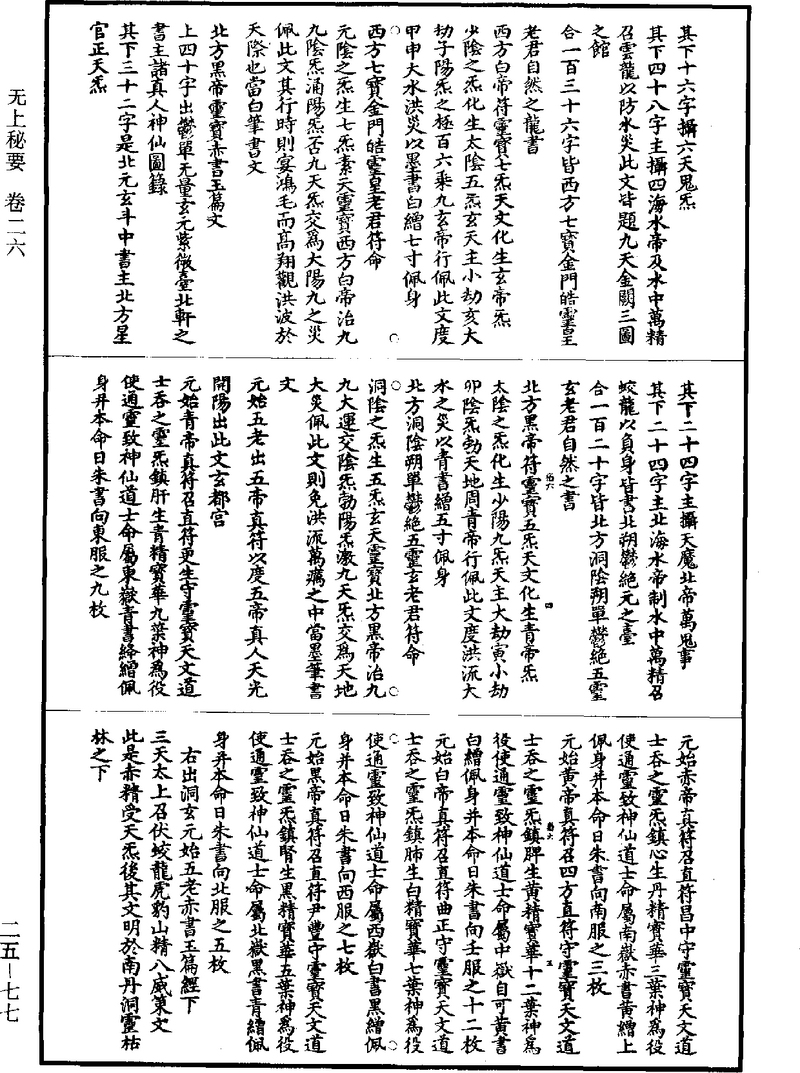 无上秘要 卷二六
其下十六字攝六天鬼炁
其下四十八字主攝四海水帝及水中萬精
召雲龍以防水災此文皆題九天金闕三圖
之館
合一百三十六字皆西方七寶金門皓靈皇
老君自然之龍書
西方白帝符靈寶七炁天文化生玄帝炁
少陰之炁化生太陰五炁玄天主小劫亥大
劫子陽炁之極百六乘九玄帝行佩此文度
甲申大水洪災以墨書白繒七寸佩身
西方七寶金門皓靈皇老君符命
元陰之炁生七炁素天靈寶西方白帝治九
九陰炁涌陽炁否九天炁交為大陽九之災
佩此文其行時則宴鴻毛而高翔觀洪波於
天際也當白筆書文
北方黑帝靈寶赤書玉篇文
上四十字出鬱單无量玄元紫微臺北軒之
書主諸真人神仙圖籙
其下三十二字是北元玄斗中書主北方星
官正天炁
其下二十四字主攝天魔北帝萬鬼事
其下二十四字主北海水帝制水中萬精召
蛟龍以負身皆書北朔鬱絕元之臺
合一百二十字皆北方洞陰朔單鬱絕五靈
玄老君自然之書
北方黑帝符靈寶五炁天文化生青帝炁
太陰之炁化生少陽九炁天主大劫寅小劫
卯陰炁勃天地周青帝行佩此文度洪流大
水之災以青書繒五寸佩身
北方洞陰朔單鬱絕五靈玄老君符命
洞陰之炁生五炁玄天靈寶北方黑帝治九
九大運交陰炁勃陽炁激九天炁交為天地
大災佩此文則免洪流萬癘之中當墨筆書
文
元始五老出五帝真符以度五帝真人天光
開陽出此文玄都宮
元始青帝真符召直符更生守靈寶天文道
士吞之靈炁鎮肝生青精寶華九葉神為役
使通靈致神仙道士命屬東嶽青書絳繒佩
身并本命日朱書向東服之九枚
元始赤帝真符召直符昌中守靈寶天文道
士吞之靈炁鎮心生丹精寶華三葉神為役
使通靈致神仙道士命屬南嶽赤書黃繒上
佩身并本命日朱書向南服之三枚
元始黃帝真符召四方直符守靈寶天文道
士吞之靈炁鎮脾生黃精寶華十二葉神為
役使通靈致神仙道士命屬中嶽自可黃書
白繒佩身并本命日朱書向王服之十二枚
元始白帝真符召直符曲正守靈寶天文道
士吞之靈炁鎮肺生白精寶華七葉神為役
使通靈致神仙道士命屬西嶽白書黑繒佩
身并本命日朱書向西服之七枚
元始黑帝真符召直符尹豐守靈寶天文道
士吞之靈炁鎮腎生黑精寶華五葉神為役
使通靈致神仙道士命屬北嶽黑書青繒佩
身并本命日朱書向北服之五枚
右出洞玄元始五老赤書玉篇經下
三天太上召伏蛟龍虎豹山精八威策文
此是赤精受天炁後其文明於南丹洞靈枯
林之下
二五—七七